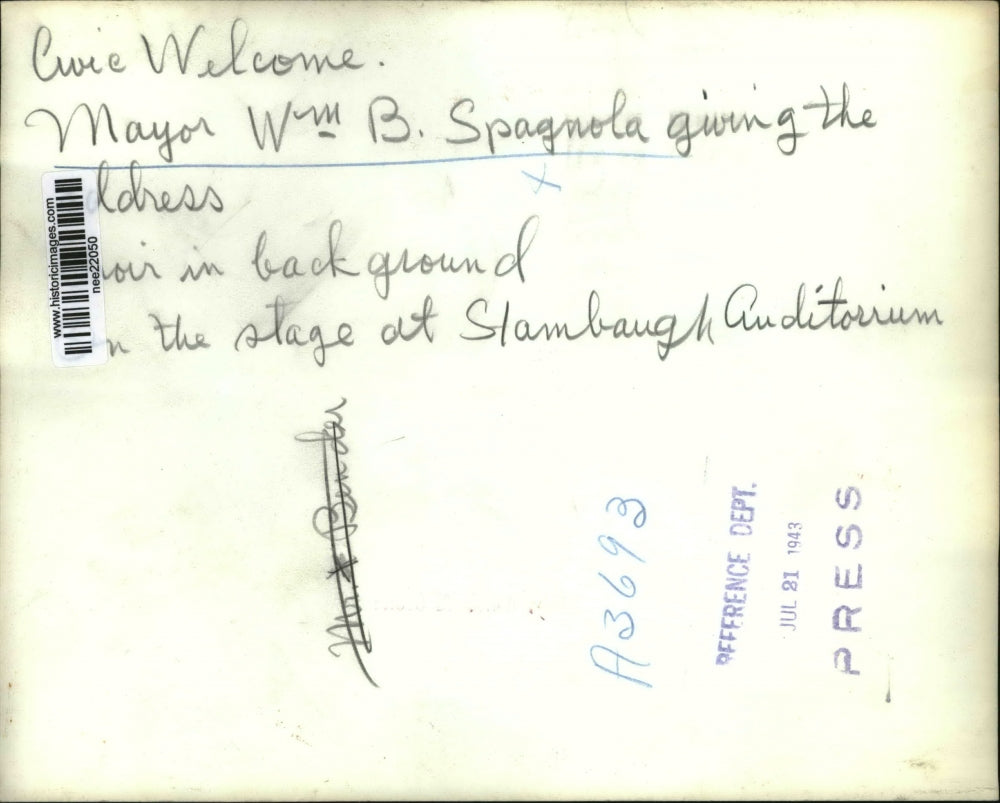 Civic Welcome.
Mayor Wm B. Spagnola giving the
ddress
oir in background
n the stage at Stambaugh Auditorium
www.historicimages.com
nee22050
Bender
A3693
REFERENCE DEPT.
JUL 21 1943
PRESS